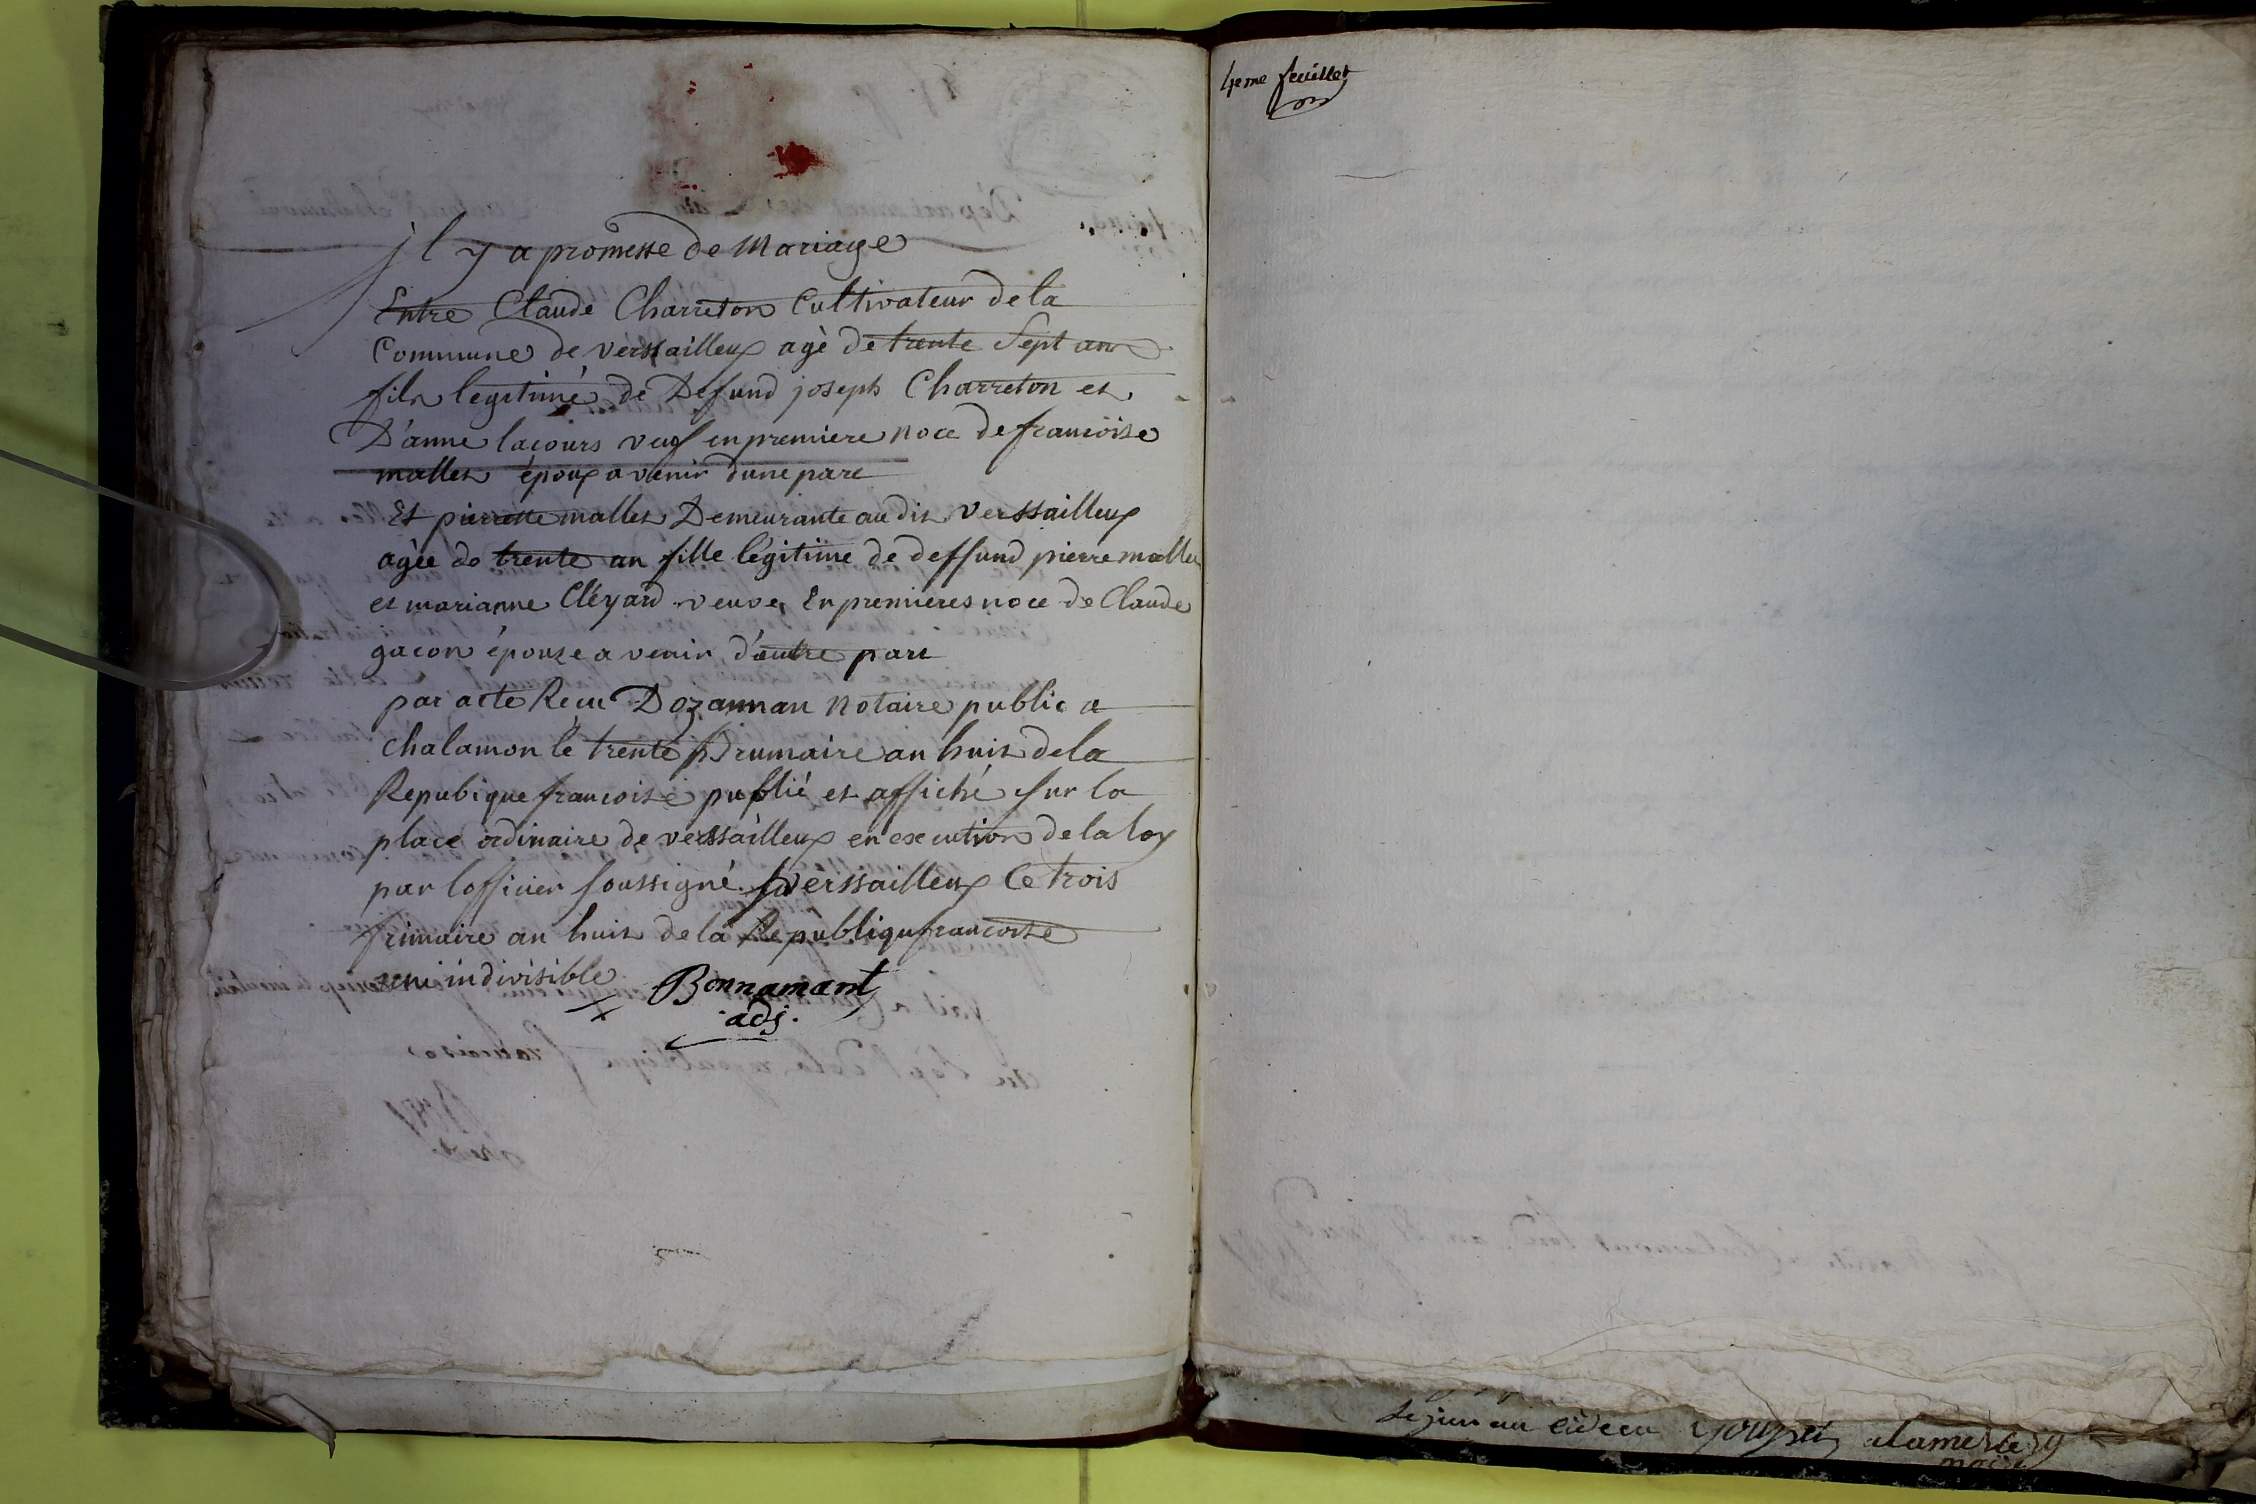 il y a promesse de Mariage
Entre Claude Charreton Cultivateur de la
Commune de versailleux agè de trente Sept ans
fils legitime de Defund joseph Charreton et
D'anne lacours veuf en premiere noce de francoise
mallet époux a venir dune part
Et pierrette mallet Demeurante au dit verssailleux
agèe de trente an fille légitime de deffund pierre mallet
et marianne Cléyard veuve En premieres noce de Claude
gacon épouse a venir d'autre part
par acte Recu Dozannan Notaire public a
chalamon le trente Brumaire an huit de la
Repubique francoise publié et affiché sur la
place ordinaire de verssailleux en execution de la loy
par lofficier soussigné verssailleux Ce trois
frimaire an huit de la Republiqu francoise
indivisible Bonnamant
adj.
4eme feuillet